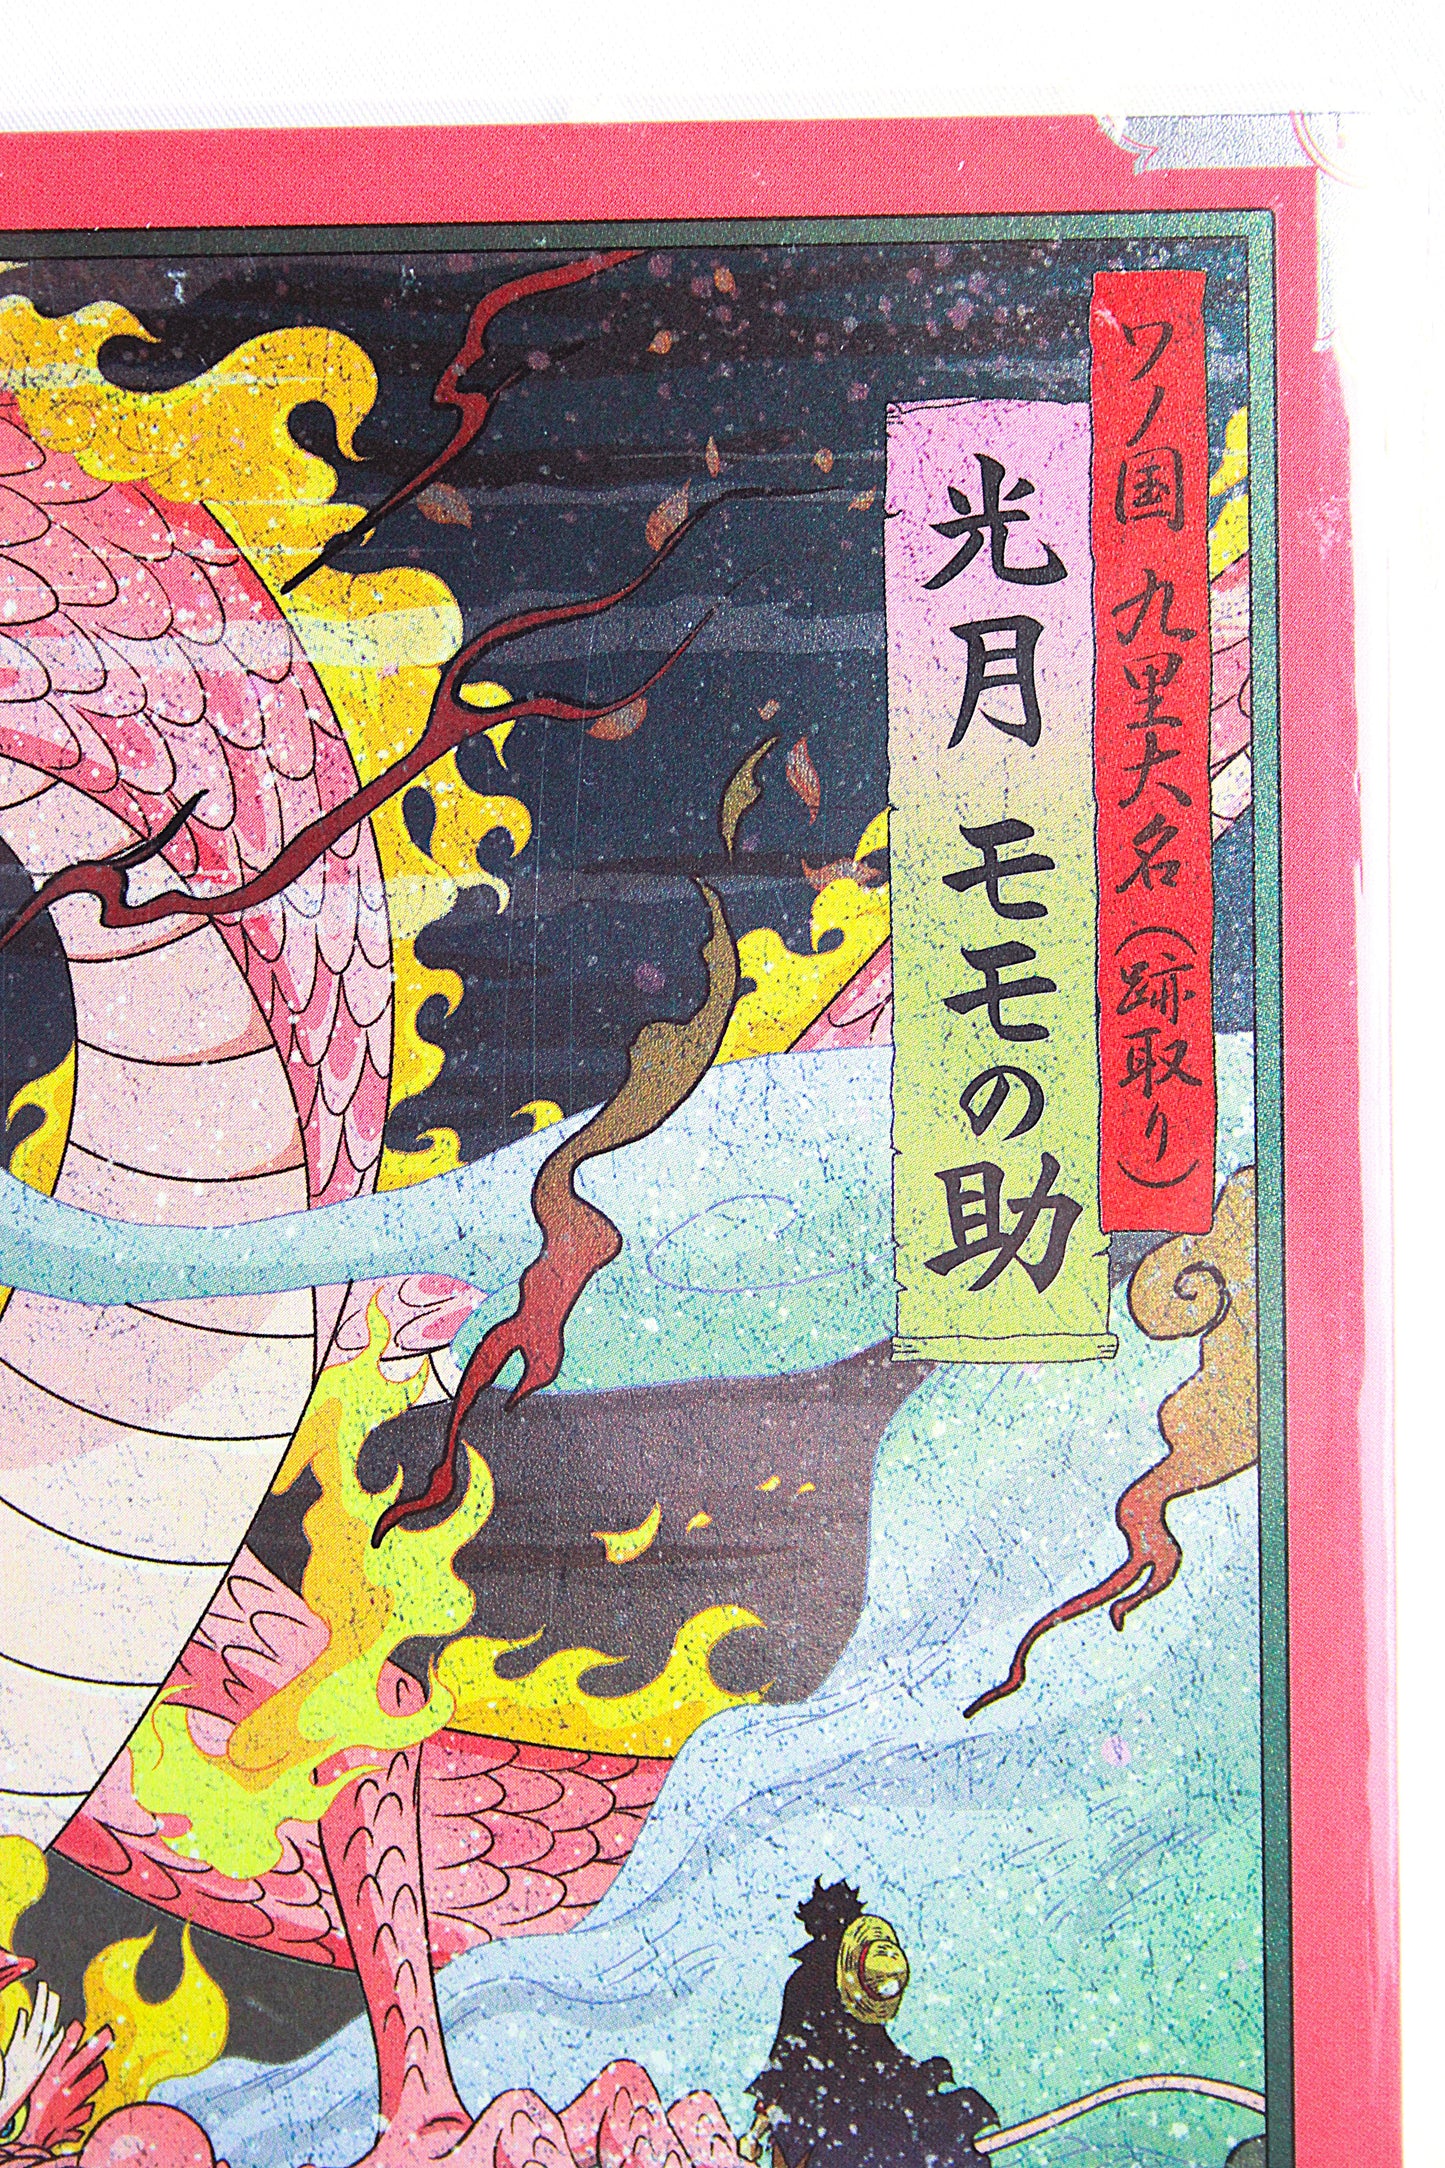 ワノ国 九里大名(跡取り)
光月 モモの助